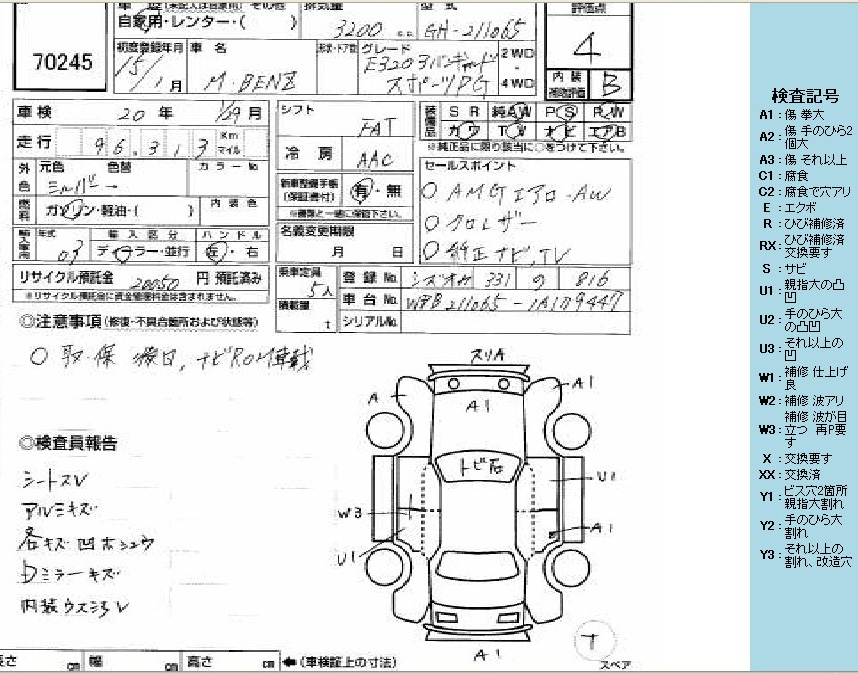 車歴 (未記入は自家用) その他
自家用・レンター・( )
排気量
3200 c.c.
型式
GH-211065
評価点
4
70245
初度登録年月
15/1月
車名
M・BENZ
形状・ドア数
グレード
E320アバンギャルド
スポーツPG
2WD
4WD
内装
補助評価
B
車検
20年 1/29月
シフト
FAT
装備品
SR 純AW PS PW
カワ TV ナビ エアB
※純正品に限り該当に○をつけて下さい。
走行
96,313
Km
マイル
冷房
AAC
外色
元色
色替
カラーNo.
シルバー
新車整備手帳
(保証書付)
有・無
※書類と一緒に確認下さい。
セールスポイント
○ AMGエアロ・AW
○ クロレザー
○ 純正ナビ,TV
燃料
ガソリン・軽油・( )
内装色
名義変更期限
月 日
輸入車用
年式
03
輸入区分
ディーラー・並行
ハンドル
左・右
リサイクル預託金 20050 円 預託済み
※リサイクル預託金に資金管理料金は含まれません。
乗車定員
5人
積載量
t
登録No. シズオカ 331 の 816
車台No. WDB211065-1A109447
シリアルNo.
◎注意事項(修復・不具合箇所および状態等)
○ 取・保 後日, ナビROM車載
◎検査員報告
シートスレ
アルミキズ
各キズ凹ホシュウ
Dミラーキズ
内装ウスヨゴレ
スリA
A
A1
A1
トビ石
U1
W3
A1
U1
A1
T
スペア
長さ cm 幅 cm 高さ cm ←(車検証上の寸法)
検査記号
A1:傷 拳大
A2:傷 手のひら2個大
A3:傷 それ以上
C1:腐食
C2:腐食で穴アリ
E:エクボ
R:ひび補修済
RX:ひび補修済 交換要す
S:サビ
U1:親指大の凸凹
U2:手のひら大の凸凹
U3:それ以上の凹
W1:補修 仕上げ良
W2:補修 波アリ
W3:補修 波が目立つ 再P要す
X:交換要す
XX:交換済
Y1:ビス穴2箇所 親指大割れ
Y2:手のひら大割れ
Y3:それ以上の割れ、改造穴